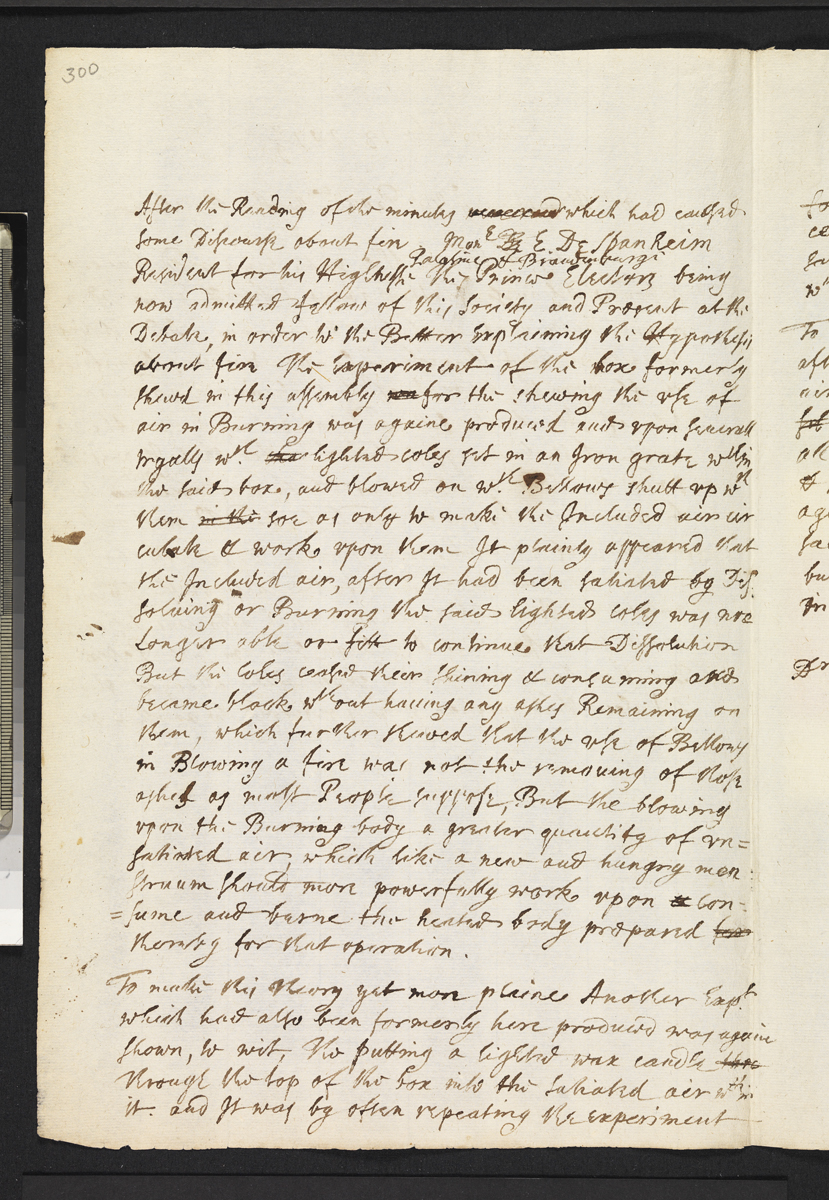 300
After the Reading of the minutes which had caused
some Discourse about fire Mon E De Spanheim
Palatine of Brandenburge
Resident for his Highnesse the Prince Elector being
now admitted fellow of this Society and Present at the
Debate, in order to the Better Explaining the Hypothesis
about fire The Experiment of the box formerly
shewd in this assembly for the shewing the use of
air in Burning was againe produced and upon severall
tryalls wth the lighted coles set in an Iron grate wthin
the said box, and blowed on wth Bellows shutt up wth
them in the soe as only to make the Included air cir
culate & worke upon them It plainly appeared that
the Included air, after It had been satiated by Dis
solving or Burning the said lighted coles was noe
Longer able or fitt to continue that Dissolution
But the Coles ceased their shining & consuming and
became black wthout having any ashes Remaining on
them, which further shewed that the use of Bellows
in Blowing a fire was not the removing of those
ashes as most People suppose, But the blowing
upon the Burning body a greater quantity of un=
satiated air, which like a new and hungry men
struum should more powerfully worke upon & con-
=sume and burne the heated body prepared
thereby for that operation.
To make this theory yet more plaine Another Expt
which had also been formerly here produced was againe
shown, to wit, the putting a lighted wax candle
through the top of the box into the satiated air wthin
it. and It was by often repeating the experiment
fo
ce
sa
w
To
aft
air
all
&
aga
sa
bu
in
Dr